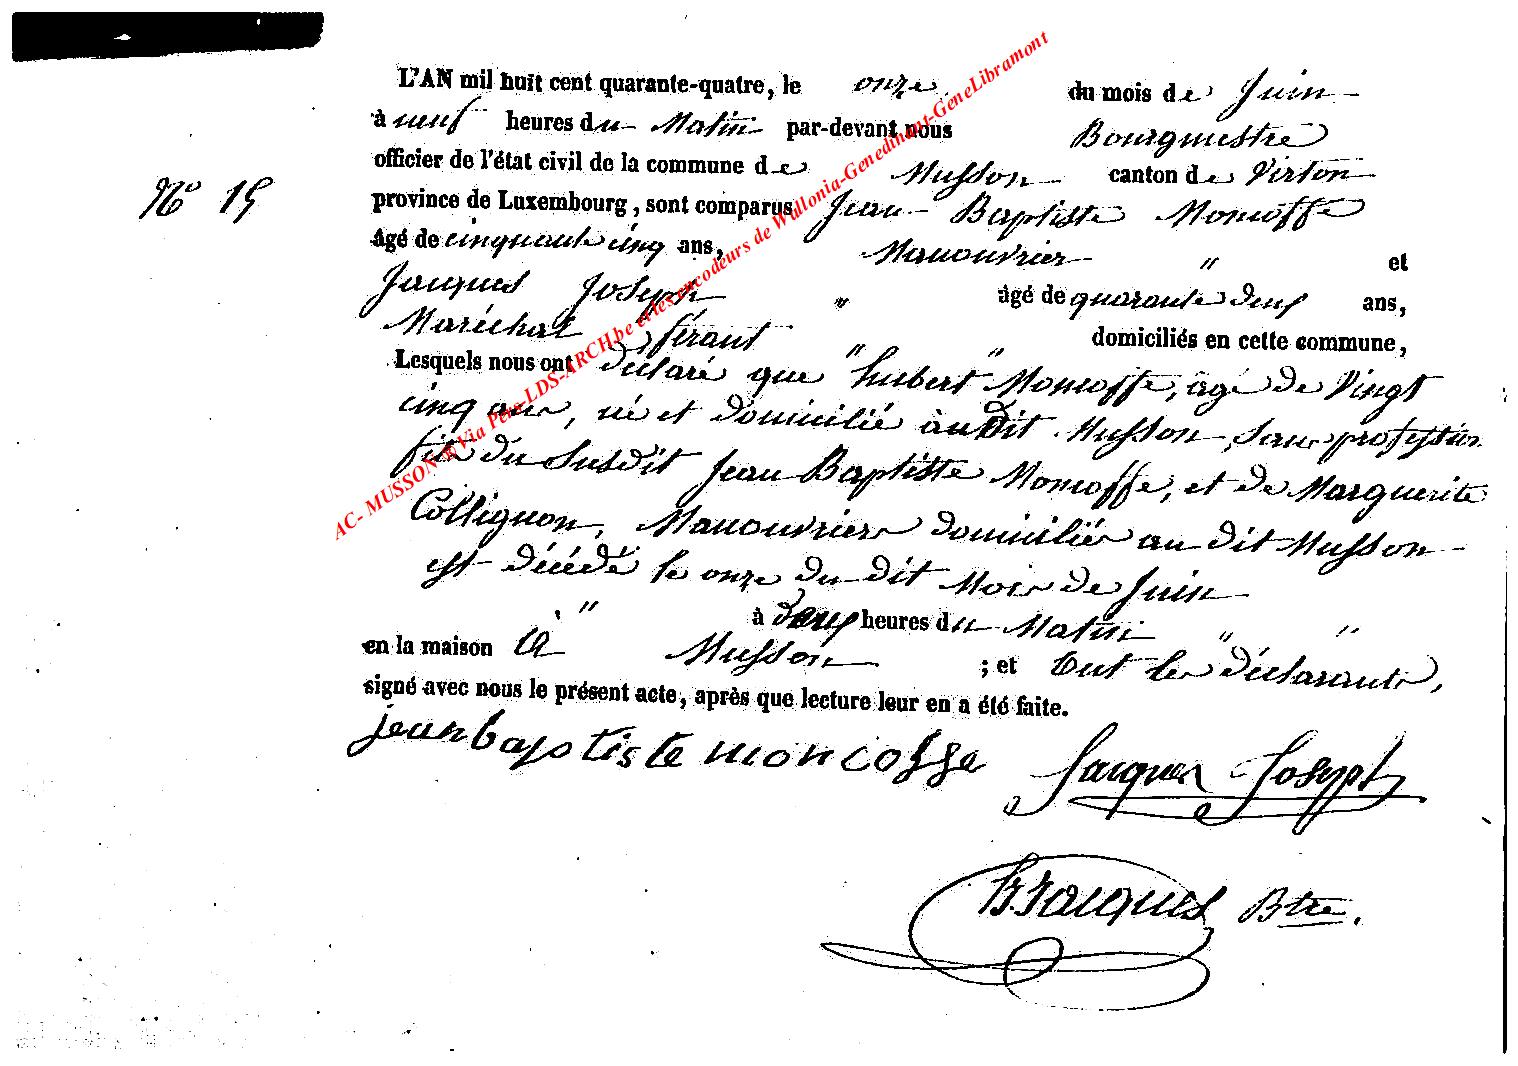 L'AN mil huit cent quarante-quatre, le onze du mois de Juin
à neuf heures du Matin par-devant nous Bourgmestre
officier de l'état civil de la commune de Musson canton de Virton
N° 15
province de Luxembourg, sont comparus Jean Baptiste Moncoffe
âgé de cinquante cinq ans, Manouvrier " et
Jacques Joseph " âgé de quarante deux ans,
Maréchal férant domiciliés en cette commune,
Lesquels nous ont déclaré que "hubert" Moncoffe, âgé de Vingt
cinq ans, né et domicilié au Dit Musson, Sans profession
fils du Susdit Jean Baptiste Moncoffe, et de Marguerite
Collignon, Manouvriers domiciliés au dit Musson
est décédé le onze du dit Mois de Juin
" à deux heures du Matin " "
en la maison à Musson ; et Ont les déclarants,
signé avec nous le présent acte, après que lecture leur en a été faite.
jean baptiste moncoffe Jacques Joseph
Jacques Btre.
AC- MUSSON ® Via Pers-LDS-ARCH.be et les encodeurs de Wallonia-Genedinant-GeneLibramont